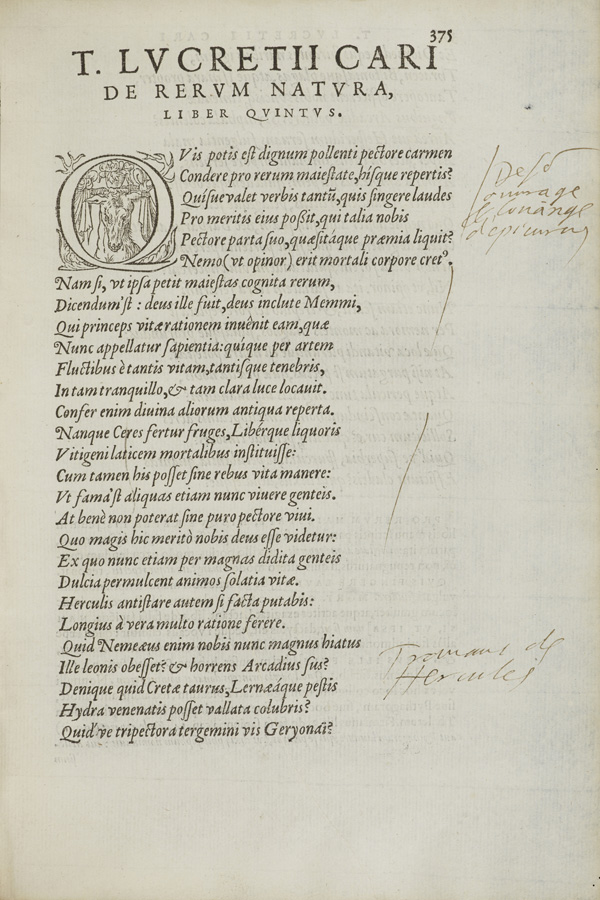 375
T. LVCRETII CARI
DE RERVM NATVRA,
LIBER QVINTVS.
QVis potis est dignum pollenti pectore carmen
Condere pro rerum maiestate, hísque repertis?
Quísue valet verbis tantũ, quis fingere laudes
Pro meritis eius poßit, qui talia nobis
Pectore parta suo, quæsitáque præmia liquit?
Nemo (vt opinor) erit mortali corpore cretꝰ.
Nam si, vt ipsa petit maiestas cognita rerum,
Dicendum'st: deus ille fuit, deus inclute Memmi,
Qui princeps vitæ rationem inuênit eam, quæ
Nunc appellatur sapientia: quique per artem
Fluctibus è tantis vitam, tantisque tenebris,
In tam tranquillo, & tam clara luce locauit.
Confer enim diuina aliorum antiqua reperta.
Nanque Ceres fertur fruges, Libérque liquoris
Vitigeni laticem mortalibus instituisse:
Cum tamen his posset sine rebus vita manere:
Vt fama'st aliquas etiam nunc viuere genteis.
At benè non poterat sine puro pectore viui.
Quo magis hic meritò nobis deus esse videtur:
Ex quo nunc etiam per magnas didita genteis
Dulcia permulcent animos solatia vitæ.
Herculis antistare autem si facta putabis:
Longius à vera multo ratione ferere.
Quid Nemeæus enim nobis nunc magnus hiatus
Ille leonis obesset? & horrens Arcadius sus?
Denique quid Cretæ taurus, Lernæáque pestis
Hydra venenatis posset vallata colubris?
Quid've tripectora tergemini vis Geryonai?
De so
ouurage
& louange
depicurus
de
Hercules